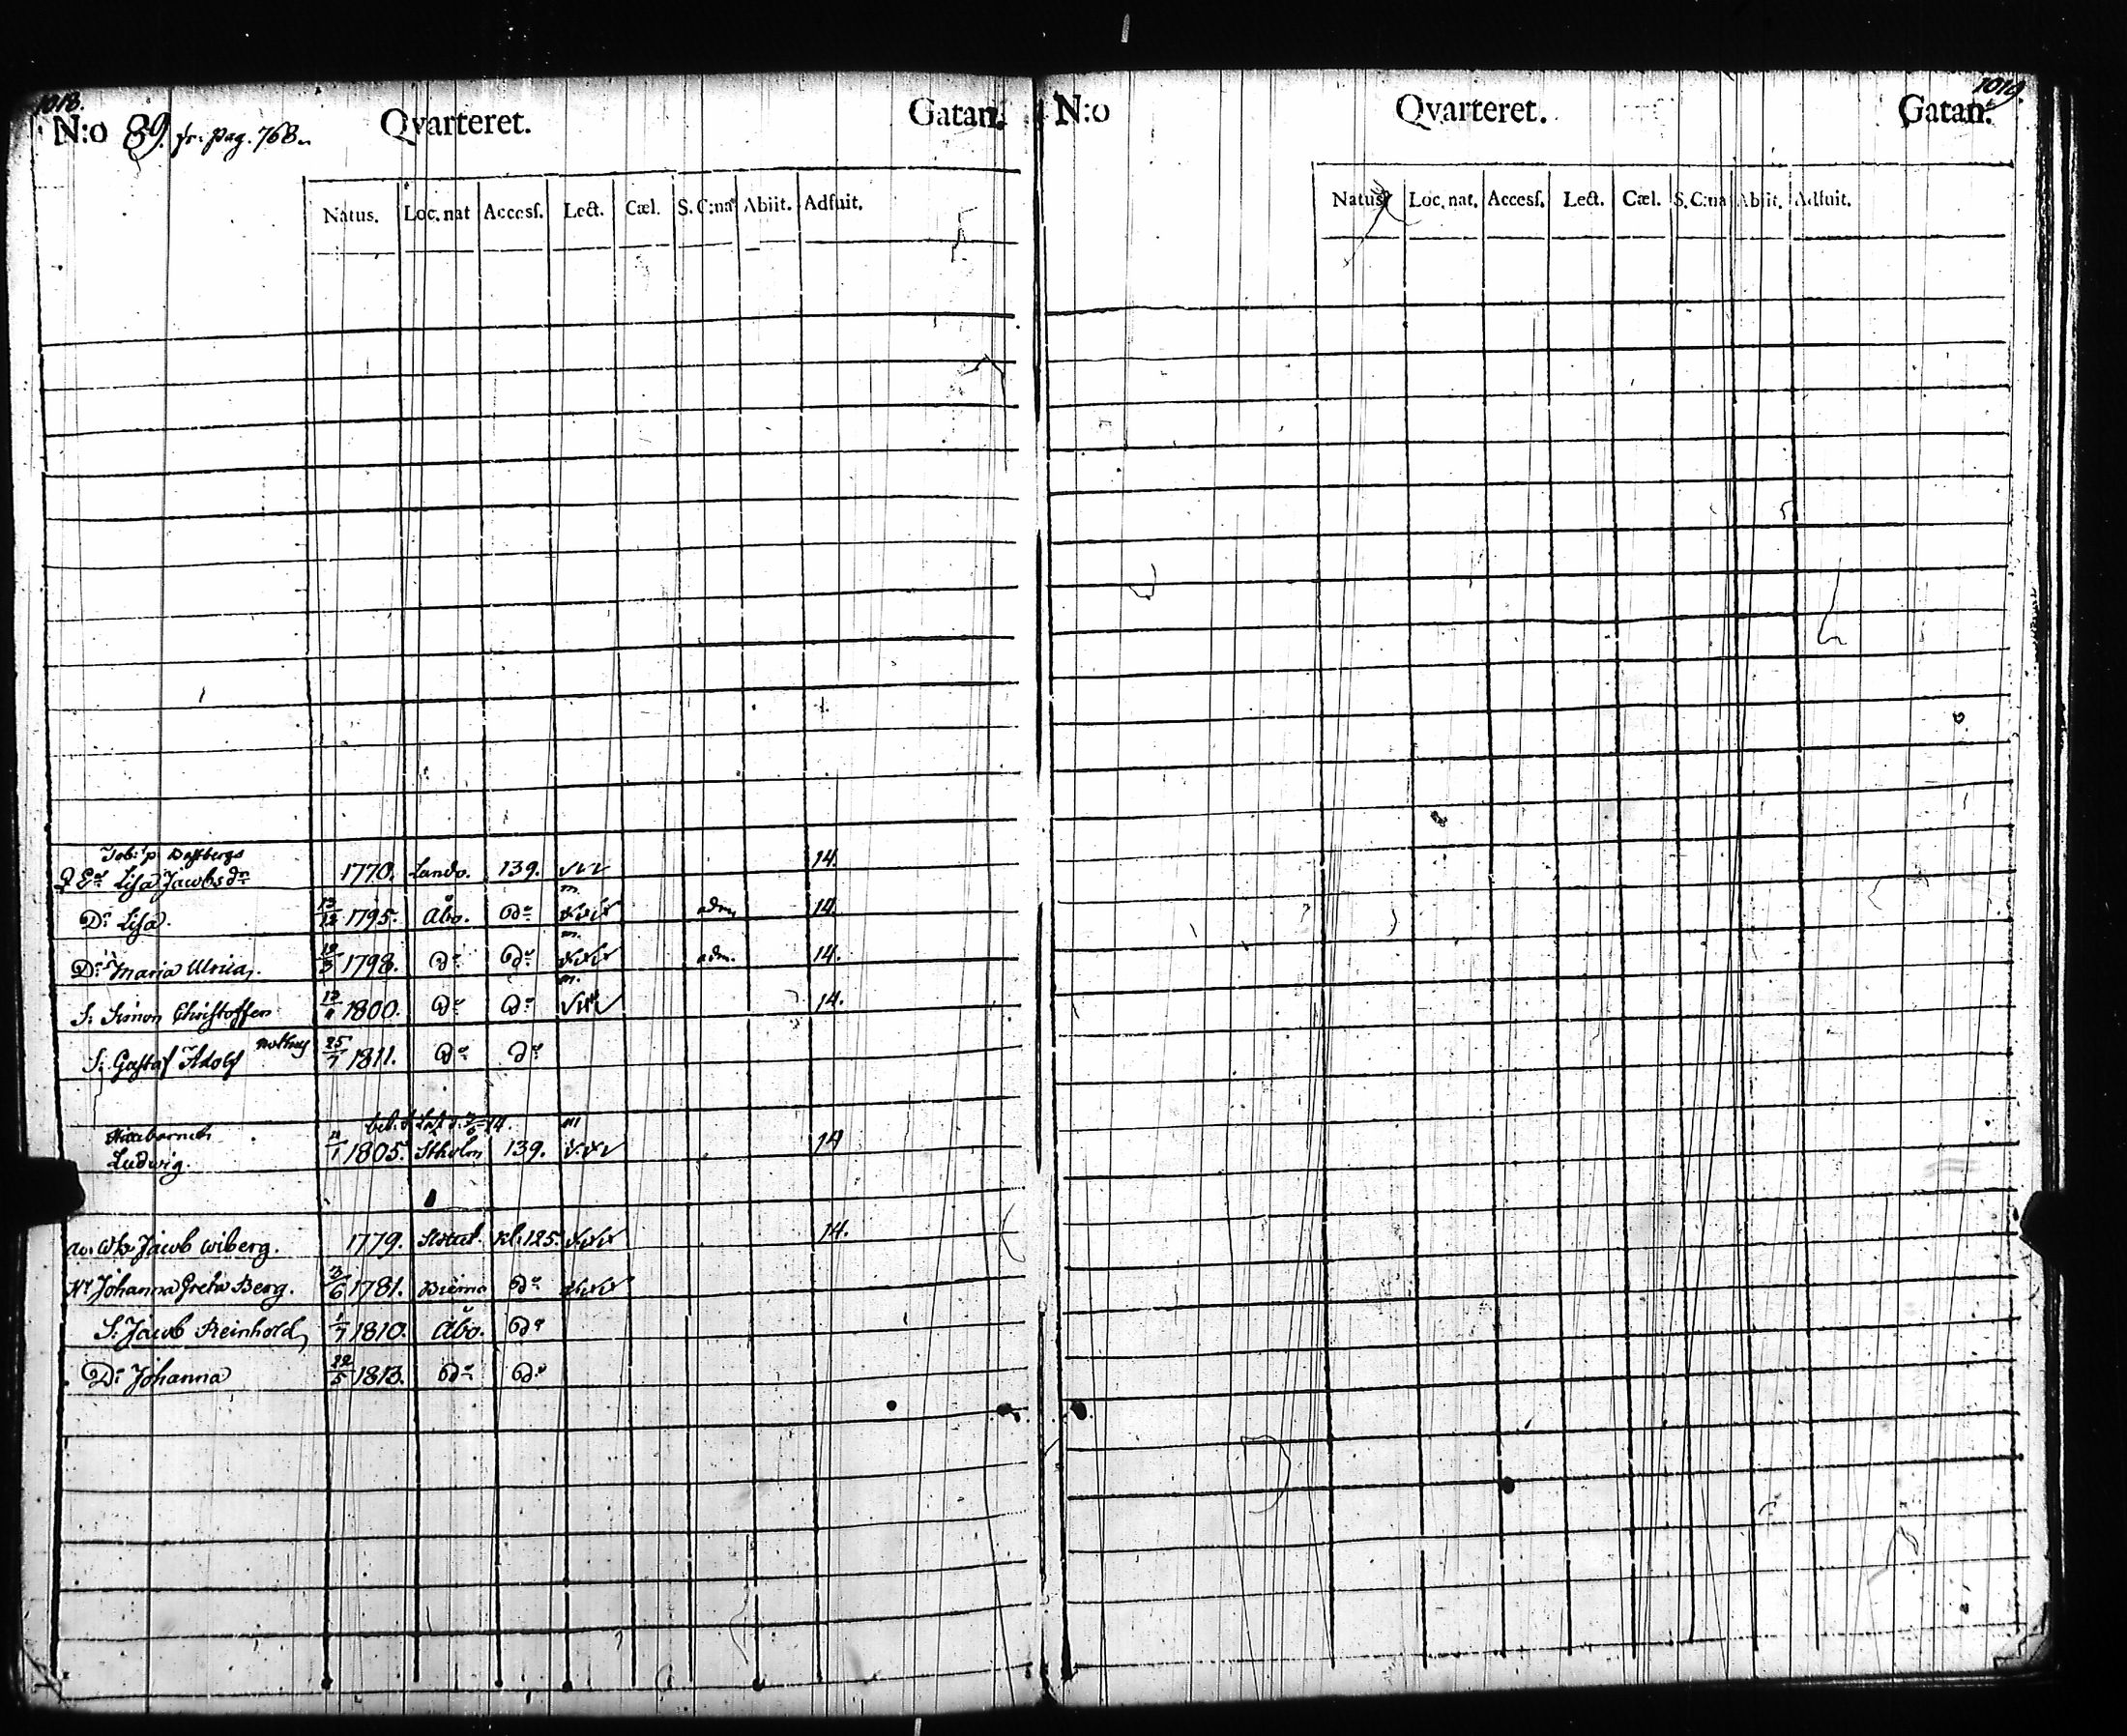 1018.
N:o 89. fr. pag. 768. Qvarteret. Gatan.
Natus. Loc. nat Accesſ. Lect. Cæl. S. C:na Abiit. Adfuit.
Enk. Liſa Jacobsdr 1770. Lando. 139. 14.
D: Liſa. 13/12 1795. Åbo. do adm. 14.
D: Maria Ulrica. 1798. do do adm. 14.
S: Simon Chriſtoffer 1800. do do 14.
S: Guſtaf Adolf 25/7 1811. do do
Ludwig. 11/1 1805. Stholm 139. 14
Jacob Wiberg. 1779. kl. 125. 14.
Johanna Greta Berg. 3/6 1781. Biernå do
S: Jacob Reinhold 1/7 1810. Åbo. do
D: Johanna 22/5 1813. do do
1019.
N:o Qvarteret. Gatan.
Natus Loc. nat. Accesſ. Lect. Cæl. S. C:na Abiit. Adfuit.